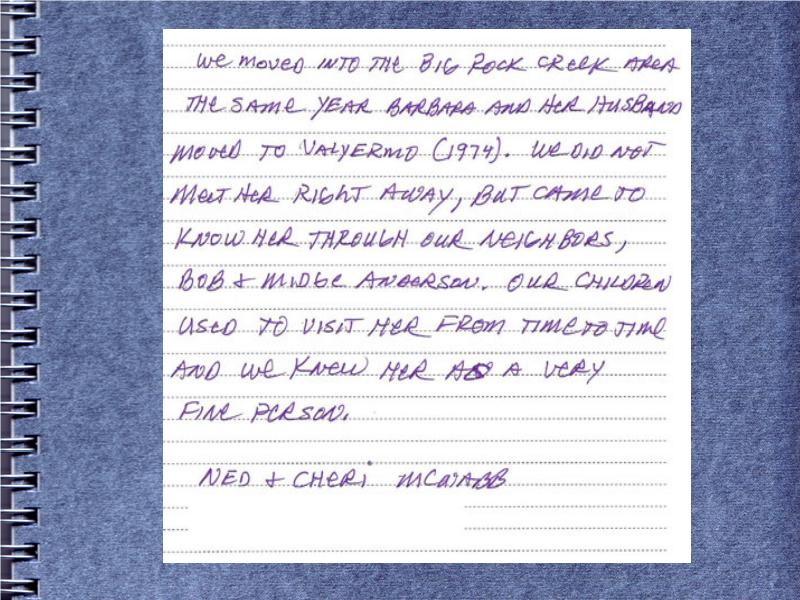 We moved into the Big Rock Creek area
the same year Barbara and her husband
moved to Valyermo (1974). We did not
meet her right away, but came to
know her through our neighbors,
Bob & Midge Anderson. Our children
used to visit her from time to time
and we knew her as a very
fine person.
Ned & Cheri McNabb